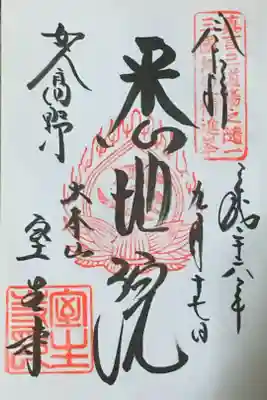 奉拝
平成二十八年
九月十七日
悉地院
女人高野
大本山
室生寺